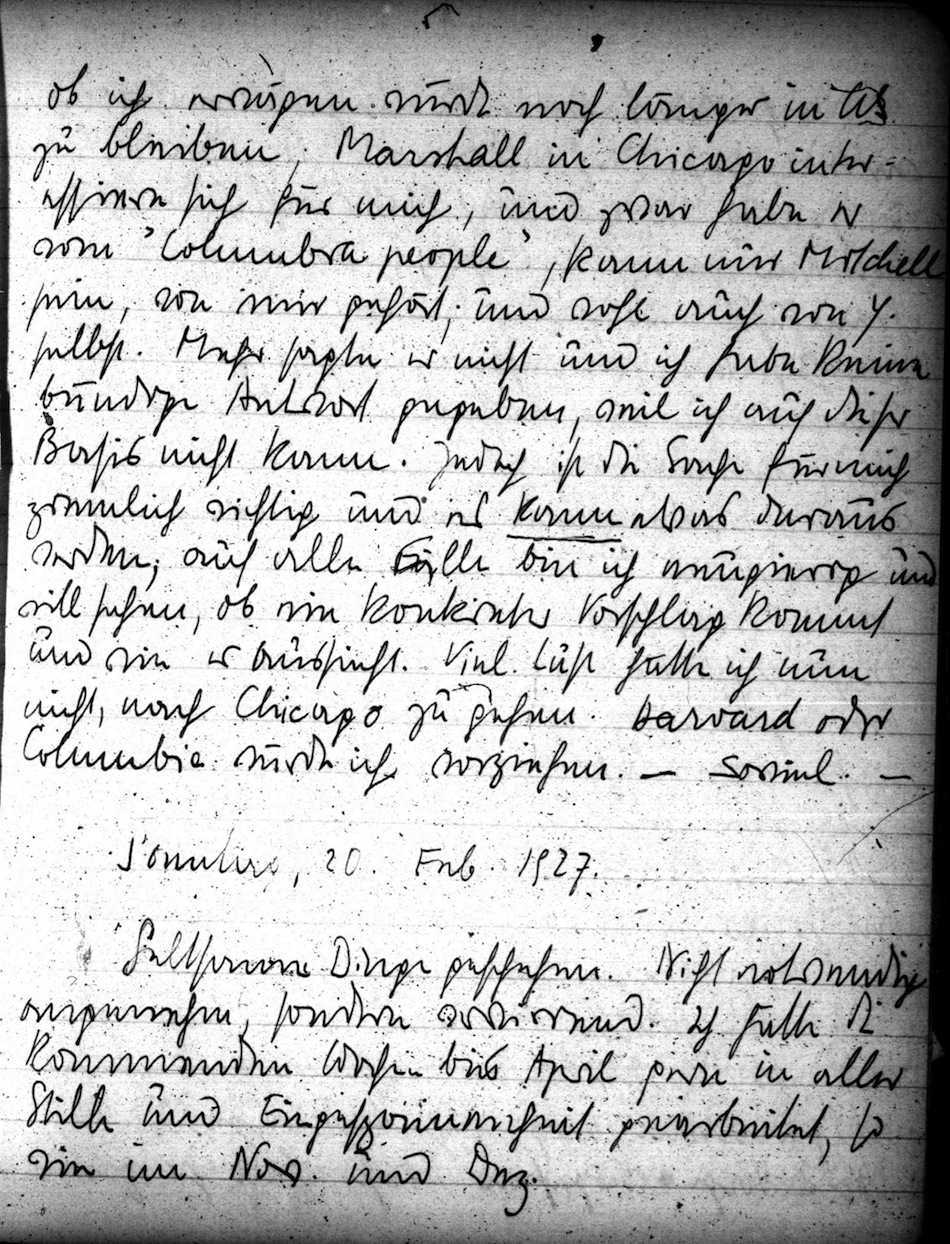 ob ich erwägen würde noch länger in US
zu bleiben; Marshall in Chicago inter=
essiere sich für mich, und zwar habe er
vom "Columbia people", kann nur Mitchell
sein, von mir gehört, und wohl auch von Y.
selbst. Mehr sagte er nicht und ich habe keine
bündige Antwort gegeben, weil ich auf dieser
Basis nicht kann. Jedoch ist die Sache für mich
ziemlich wichtig und es kann etwas daraus
werden; auf alle Fälle bin ich neugierig und
will sehen, ob ein konkreter Vorschlag kommt
und wie er aussieht. Viel Lust hätte ich nun
nicht, nach Chicago zu gehen. Harvard oder
Columbia würde ich vorziehen. — Soviel. —
Sonntag, 20. Feb. 1927.
Seltsame Dinge geschehen. Nicht notwendig
angenehm, sondern verwirrend. Ich hätte die
kommenden Wochen bis April gern in aller
Stille und Eingesponnenheit gearbeitet, so
wie im Nov. und Dez.